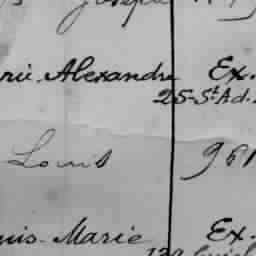 Joseph
rie. Alexandre Ex.
25-St Ad.
Louis 961
uis. Marie Ex.
130